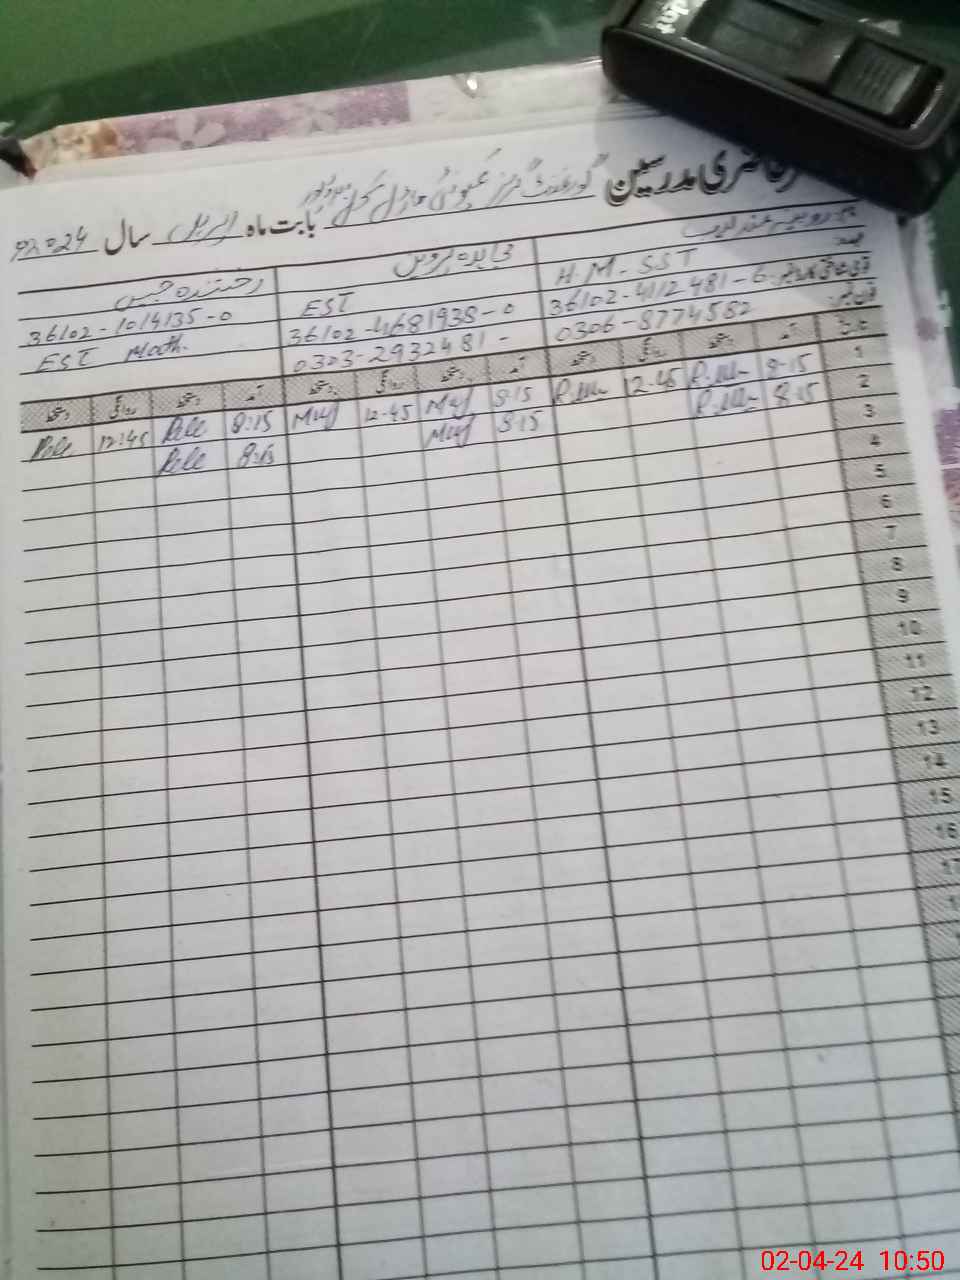 حاضری مدرسین گورنمنٹ گرلز کمیونٹی ماڈل سکول بابت ماہ اپریل سال 2024ء
نام: روبینہ عندلیب مجاہدہ پروین رخشندہ جبیں
عہدہ: H.M-SST EST 36102-1014135-0
قومی شناختی کارڈ نمبر: 36102-4112481-6 36102-4681938-0 EST Math.
فون نمبر: 0306-8774582 0303-2932481-
تاریخ آمد دستخط روانگی دستخط آمد دستخط روانگی دستخط آمد دستخط روانگی دستخط
1 8-15 12-45 8-15 12-45 8:15 12:45
2 8-15 8-15 8:15
3
4
5
6
7
8
9
10
11
12
13
14
15
16
17
02-04-24 10:50